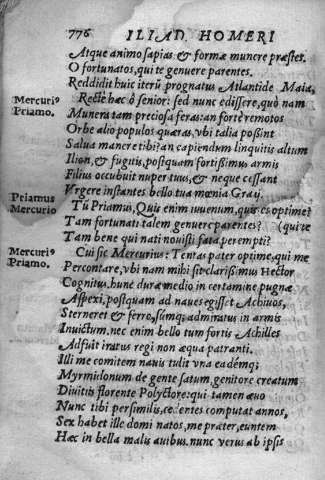 776 ILIAD. HOMERI
Atque animo sapias & formæ munere præstes.
O fortunatos, qui te genuere parentes.
Reddidit huic iterũ prognatus Atlantide Maia,
Mercuriꝰ Priamo.
Recte hæc ô senior: sed nunc edissere, quò nam
Munera tam preciosa feras: an forte remotos
Orbe alio populos quæras, vbi talia possint
Salua manere tibi? an capiendum linquitis altum
Ilion, & fugitis, postquam fortissimus armis
Filius occubuit nuper tuus, & neque cessant
Vrgere instantes bello tua mœnia Graij.
Priamus Mercurio
Tũ Priamus, Quis enim iuuenum, quis es optime?
Tam fortunati talem genuere parentes? (qui te
Tam bene qui nati nouisti fata perempti?
Mercuriꝰ Priamo.
Cui sic Mercurius: Tentas pater optime, qui me
Percontare, vbi nam mihi sit clarissimus Hector
Cognitus, hunc dura medio in certamine pugnæ
Aspexi, postquam ad naues egisset Achiuos,
Sterneret & ferro, sũmq; admiratus in armis
Inuictum, nec enim bello tum fortis Achilles
Adfuit iratus regi non æqua patranti.
Illi me comitem nauis tulit vna eadẽmq;
Myrmidonum de gente satum, genitore creatum
Diuitiis florente Polyctore: qui tamen æuo
Nunc tibi persimilis, cedentes computat annos,
Sex habet ille domi natos, me præter, euntem
Hæc in bella malis auibus. nunc verus ab ipsis